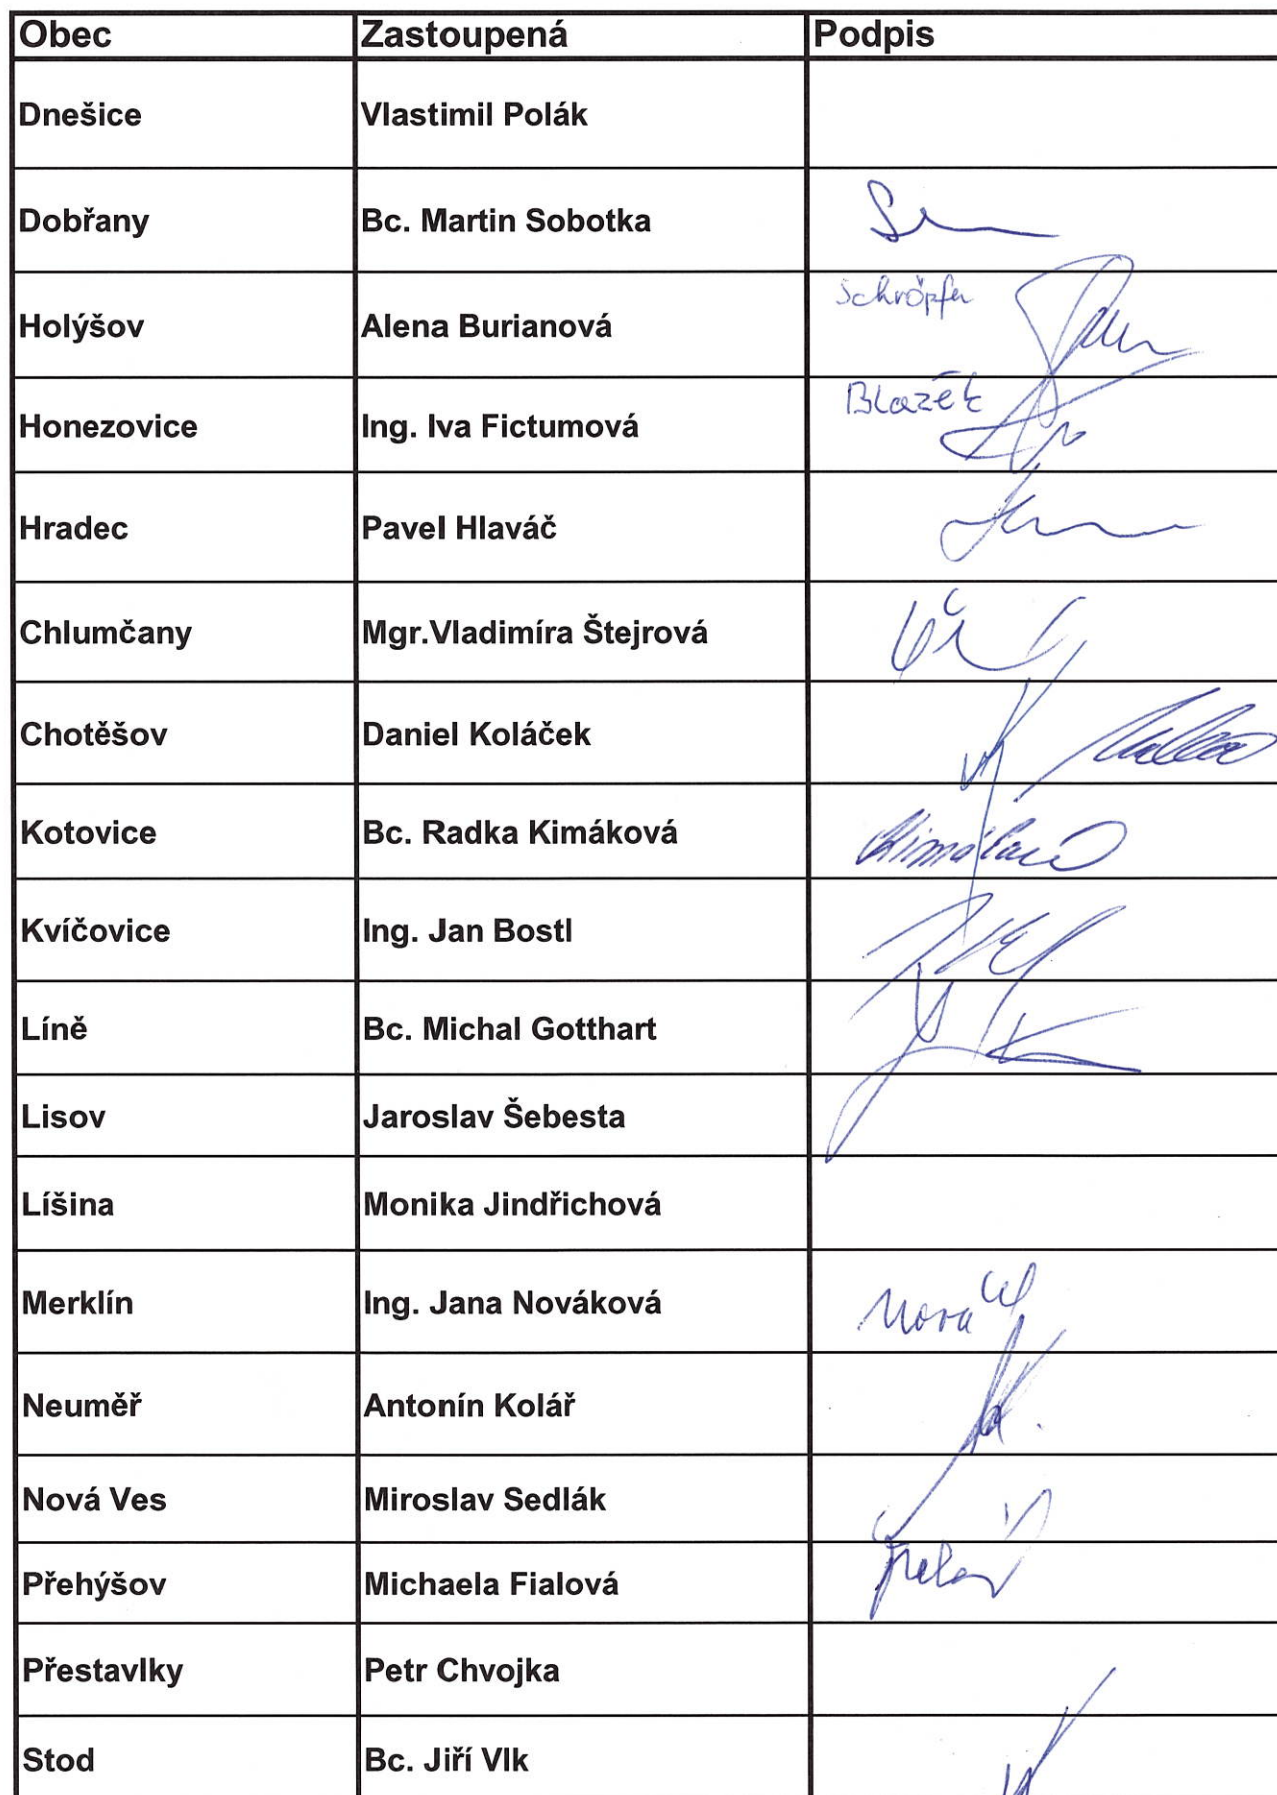 Obec Zastoupená Podpis
Dnešice Vlastimil Polák
Dobřany Bc. Martin Sobotka
Holýšov Alena Burianová Schröpfer
Honezovice Ing. Iva Fictumová Blazek
Hradec Pavel Hlaváč
Chlumčany Mgr.Vladimíra Štejrová
Chotěšov Daniel Koláček
Kotovice Bc. Radka Kimáková
Kvíčovice Ing. Jan Bostl
Líně Bc. Michal Gotthart
Lisov Jaroslav Šebesta
Líšina Monika Jindřichová
Merklín Ing. Jana Nováková
Neuměř Antonín Kolář
Nová Ves Miroslav Sedlák
Přehýšov Michaela Fialová
Přestavlky Petr Chvojka
Stod Bc. Jiří Vlk